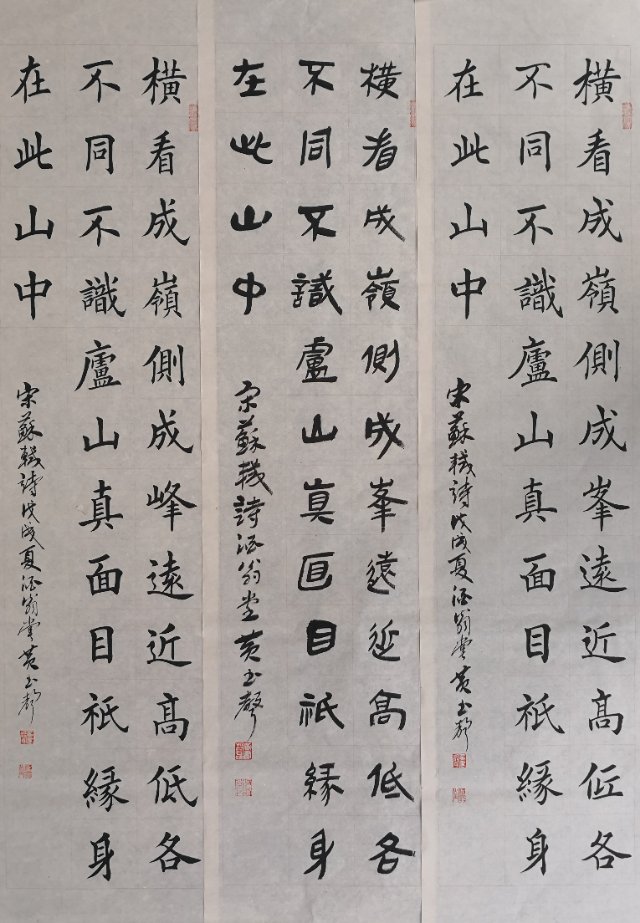 橫看成嶺側成峯遠近高低各
不同不識廬山真面目祗緣身
在此山中
宋蘇軾詩戊戌夏酒翁堂黄玉聲
橫看成嶺側成峯遠近高低各
不同不識盧山真面目祗緣身
在此山中
宋蘇軾詩酒翁堂黄玉聲
橫看成嶺側成峰遠近高低各
不同不識廬山真面目祗緣身
在此山中
宋蘇軾詩戊戌夏酒翁堂黄玉聲